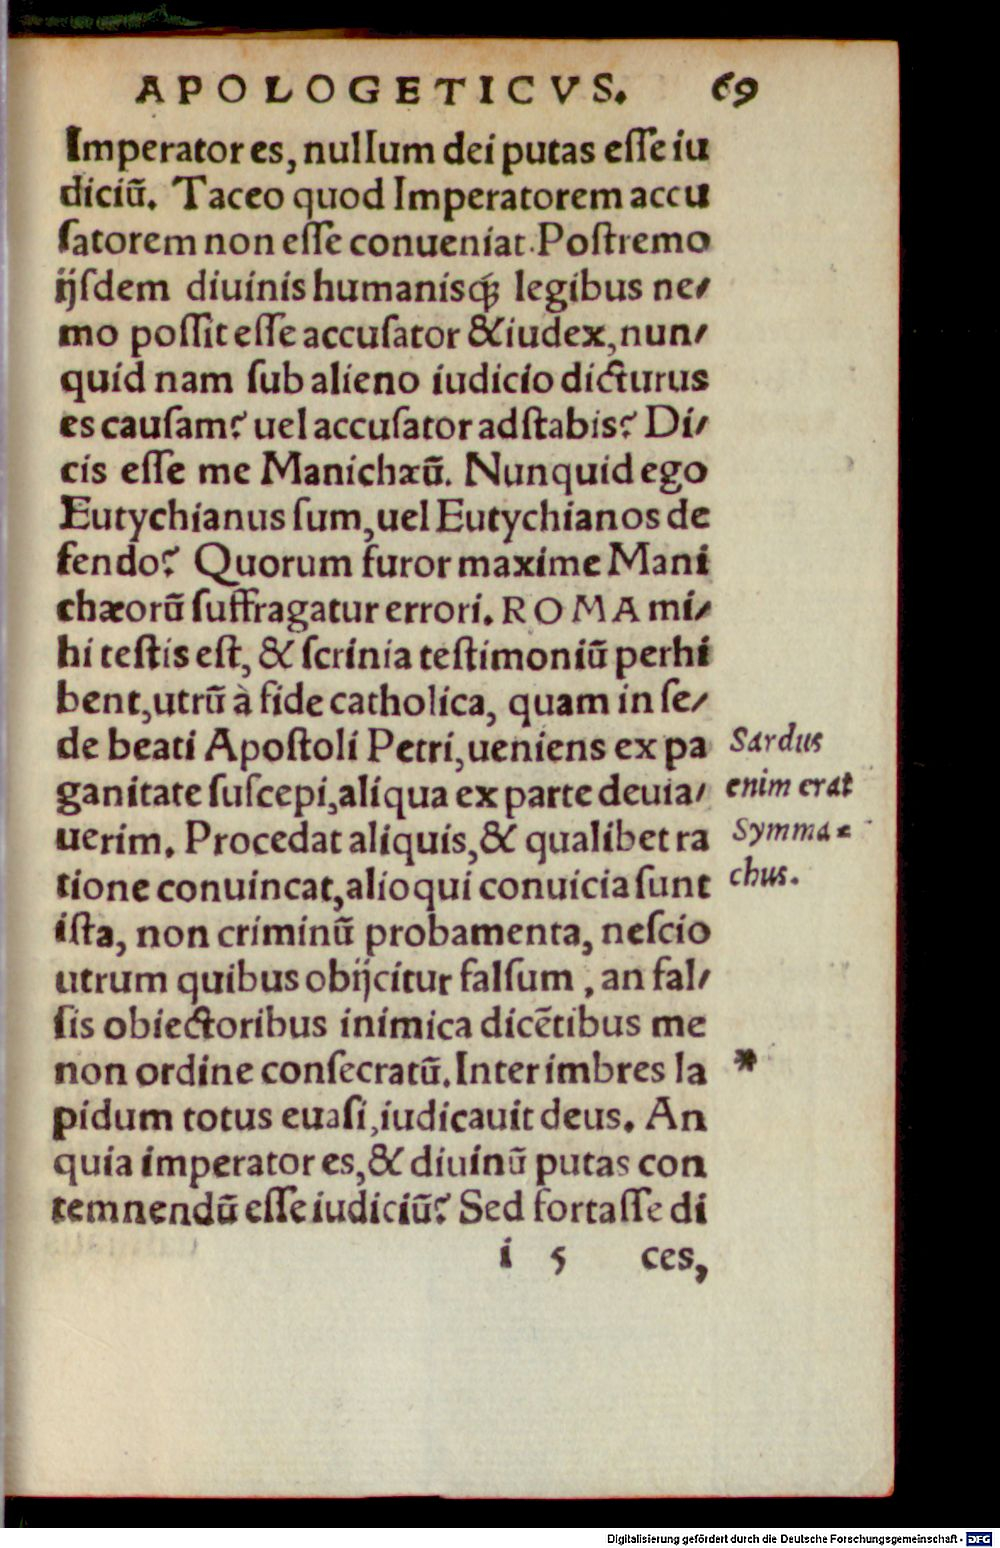 APOLOGETICVS. 69
Imperator es, nullum dei putas eſſe iu
diciū. Taceo quod Imperatorem accu
ſatorem non eſſe conueniat. Poſtremo
ijſdem diuinis humanisq́; legibus ne-
mo poſſit eſſe accuſator & iudex, nun-
quid nam ſub alieno iudicio dicturus
es cauſam? uel accuſator adſtabis? Di-
cis eſſe me Manichæū. Nunquid ego
Eutychianus ſum, uel Eutychianos de
fendo? Quorum furor maxime Mani
chæorū ſuffragatur errori. ROMA mi-
hi teſtis eſt, & ſcrinia teſtimoniū perhi
bent, utrū à fide catholica, quam in ſe-
de beati Apoſtoli Petri, ueniens ex pa
ganitate ſuſcepi, aliqua ex parte deuia-
uerim. Procedat aliquis, & qualibet ra
tione conuincat, alioqui conuicia ſunt
iſta, non criminū probamenta, neſcio
utrum quibus obijcitur falſum, an fal-
ſis obiectoribus inimica dicētibus me
non ordine conſecratū. Inter imbres la
pidum totus euaſi, iudicauit deus. An
quia imperator es, & diuinū putas con
temnendū eſſe iudiciū? Sed fortaſſe di
i 5 ces,
Sardus
enim erat
Symma-
chus.
*
Digitalisierung gefördert durch die Deutsche Forschungsgemeinschaft - DFG